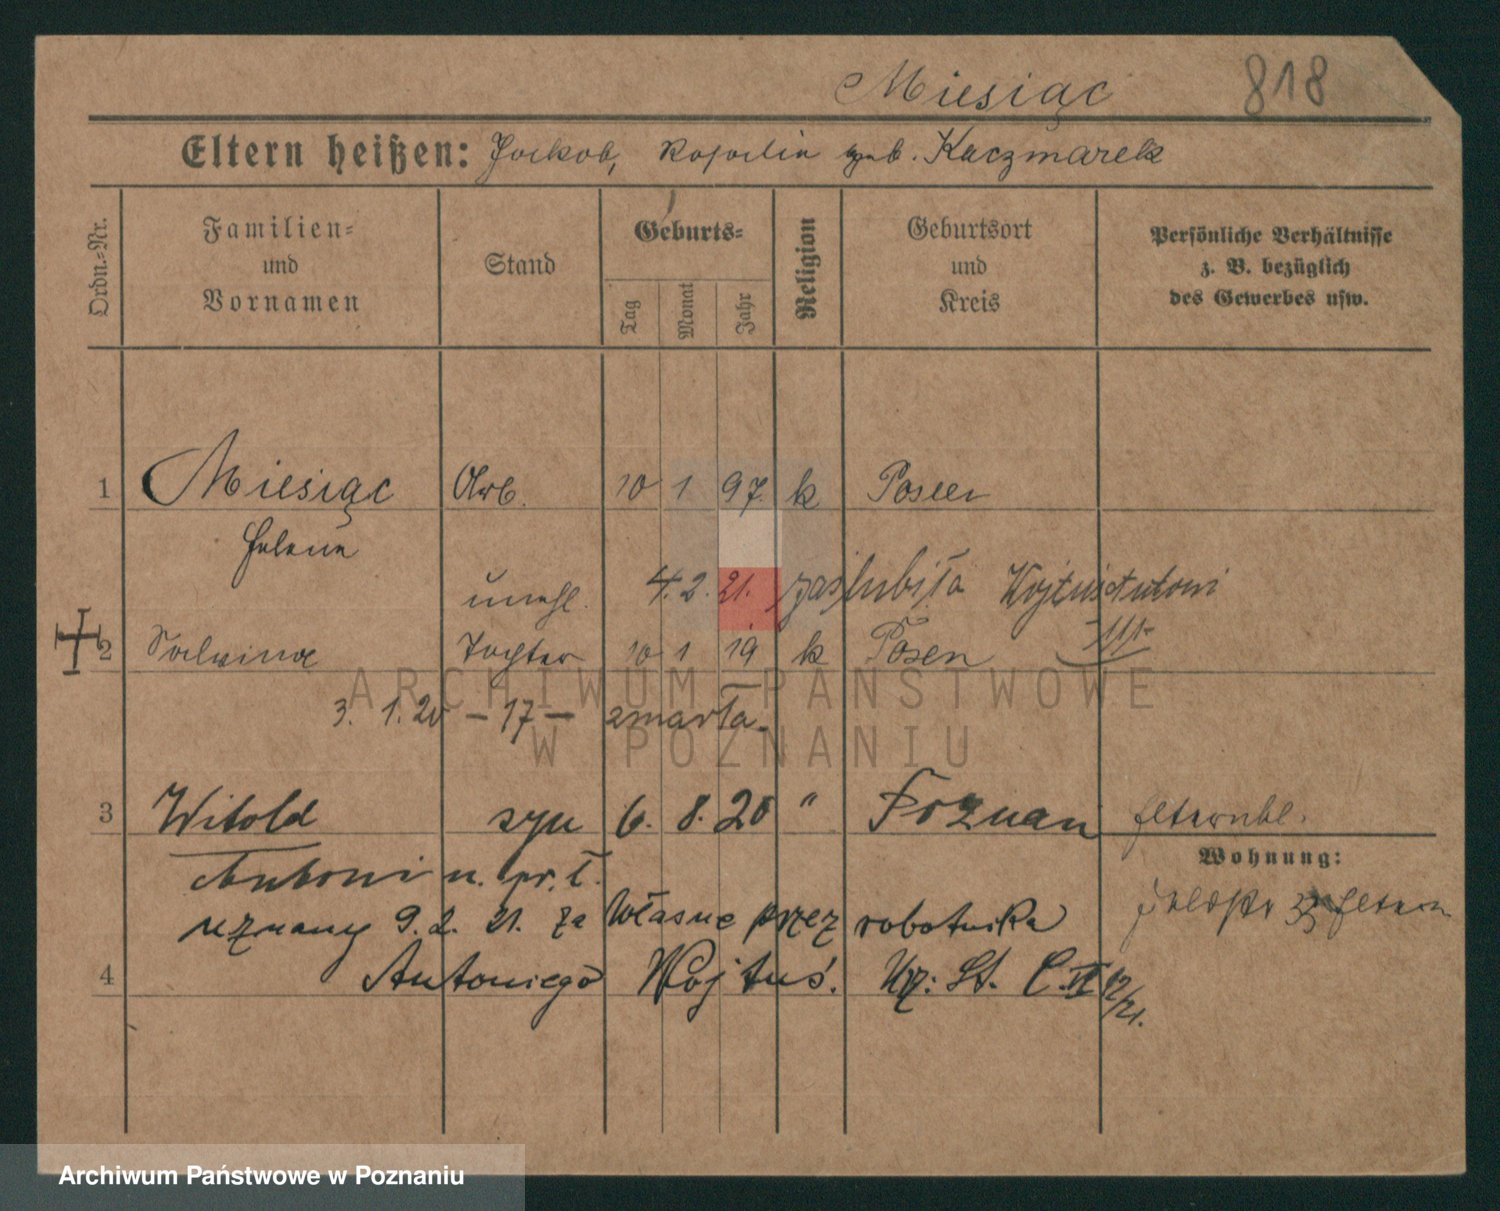 Miesiąc 818
Eltern heißen: Jackob, Rosalia geb. Kaczmarek
Ordn.-Nr.
Familien- und Vornamen
Stand
Geburts-
Tag Monat Jahr
Religion
Geburtsort und Kreis
Persönliche Verhältnisse z. B. bezüglich des Gewerbes usw.
1 Miesiąc Arb. 10 1 97. k Posen
Helene
unehl. 4. 2. 21. zaslubiła Wojtuś Antoni
2 Salwina Tochter 10 1 19 k Posen
3. 1. 20 – 17 – zmarła
ARCHIWUM PAŃSTWOWE
W POZNANIU
3 Witold syn 6. 8. 20 " Poznan
Wohnung:
Antoni u. pr. t.
uznany 9. 2. 21. za własne przez robotnika
4 Antoniego Wojtuś. Urz: St. C. II 12/21.
Archiwum Państwowe w Poznaniu